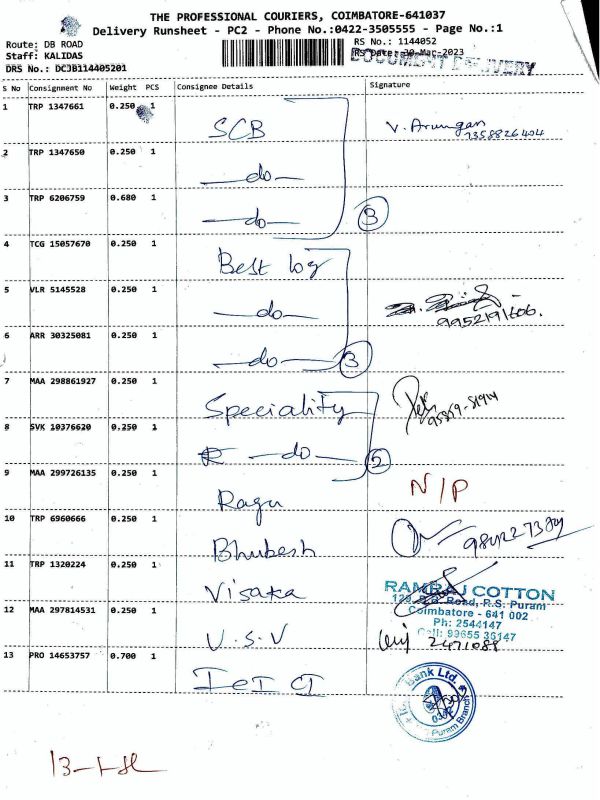 THE PROFESSIONAL COURIERS, COIMBATORE-641037
Delivery Runsheet - PC2 - Phone No.:0422-3505555 - Page No.:1
Route: DB ROAD
RS No.: 1144052
Staff: KALIDAS
RS Date: 30-Mar-2023
DRS No.: DCJB114405201
DOCUMENT DELIVERY
S No Consignment No Weight PCS Consignee Details Signature
1 TRP 1347661 0.250 1 SCB V. Arumgan
7358826404
2 TRP 1347650 0.250 1 —do—
3 TRP 6206759 0.680 1 —do— 3
4 TCG 15057670 0.250 1 Best log
5 VLR 5145528 0.250 1 —do—
9952191606.
6 ARR 30325081 0.250 1 —do— 3
7 MAA 298861927 0.250 1 Speciality
8 SVK 10376620 0.250 1 —do—
9 MAA 299726135 0.250 1 Ragu N/P
10 TRP 6960666 0.250 1 Bhubesh
11 TRP 1320224 0.250 1 Visaka
RAMRAJ COTTON
Road, R.S. Puram
Coimbatore - 641 002
Ph: 2544147
Cell: 99655 35147
12 MAA 297814531 0.250 1 U.S.V 2471088
13 PRO 14653757 0.700 1
Bank Ltd.
Puram Branch